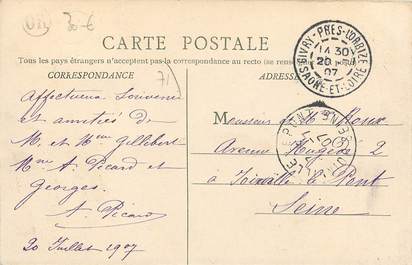 OR
30-6
CARTE POSTALE
Tous les pays étrangers n'acceptent pas la correspondance au recto (se rensei
CORRESPONDANCE
71
ADRESSE
GIVRY-PRÈS-L'ORBIZE
14 30
20
07
SAONE-ET-LOIRE
Affectueux souvenir
et amitiés de
M. et Mme Gillibert
Mme A. Picard et
Georges.
A. Picard
20 Juillet 1907
Monsieur de M. Roux
Avenue Hugède 2
à Joinville le Pont
Seine